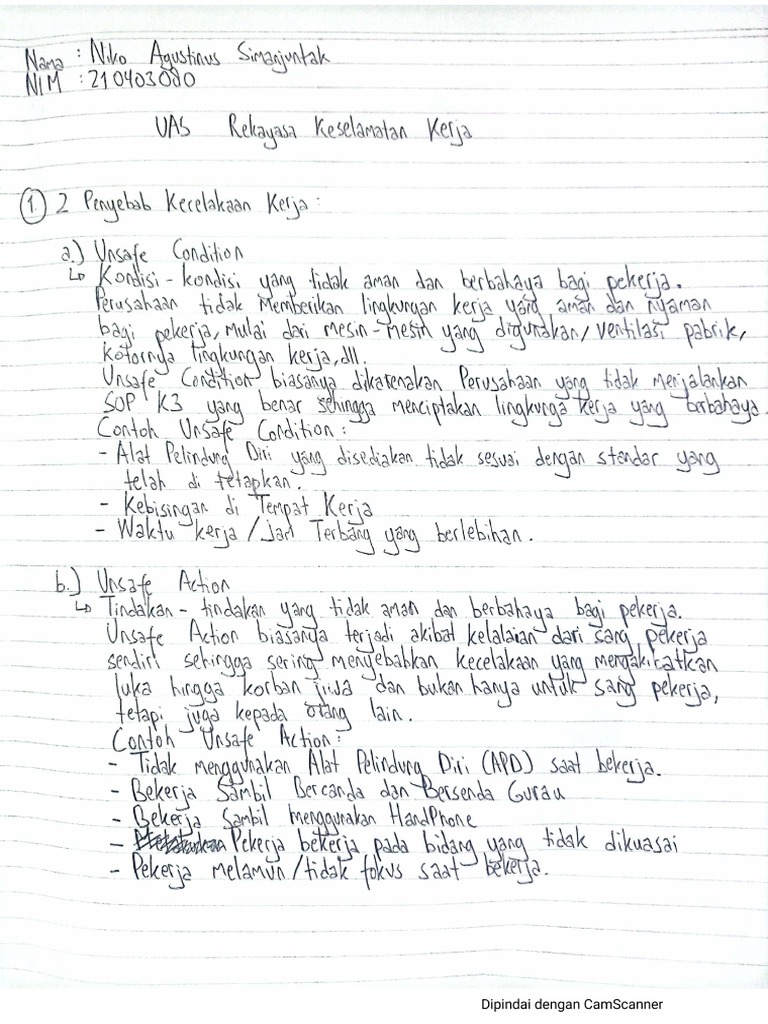 Nama : Niko Agustinus Simanjuntak
NIM : 210403080
UAS Rekayasa Keselamatan Kerja
1. 2 Penyebab Kecelakaan Kerja :
a.) Unsafe Condition
↳ Kondisi - kondisi yang tidak aman dan berbahaya bagi pekerja.
Perusahaan tidak memberikan lingkungan kerja yang aman dan nyaman
bagi pekerja, mulai dari mesin-mesin yang digunakan/ventilasi pabrik,
kotornya lingkungan kerja, dll.
Unsafe Condition biasanya dikarenakan Perusahaan yang tidak menjalankan
SOP K3 yang benar sehingga menciptakan lingkunga kerja yang berbahaya.
Contoh Unsafe Condition :
- Alat Pelindung Diri yang disediakan tidak sesuai dengan standar yang
telah di tetapkan.
- Kebisingan di Tempat Kerja
- Waktu kerja / Jam Terbang yang berlebihan.
b.) Unsafe Action
↳ Tindakan - tindakan yang tidak aman dan berbahaya bagi pekerja.
Unsafe Action biasanya terjadi akibat kelalaian dari sang pekerja
sendiri sehingga sering menyebabkan kecelakaan yang mengakibatkan
luka hingga korban jiwa dan bukan hanya untuk sang pekerja,
tetapi juga kepada orang lain.
Contoh Unsafe Action :
- Tidak menggunakan Alat Pelindung Diri (APD) saat bekerja.
- Bekerja Sambil Bercanda dan Bersenda Gurau
- Bekerja Sambil menggunakan HandPhone
- Pekerja bekerja pada bidang yang tidak dikuasai
- Pekerja melamun/tidak fokus saat bekerja.
Dipindai dengan CamScanner